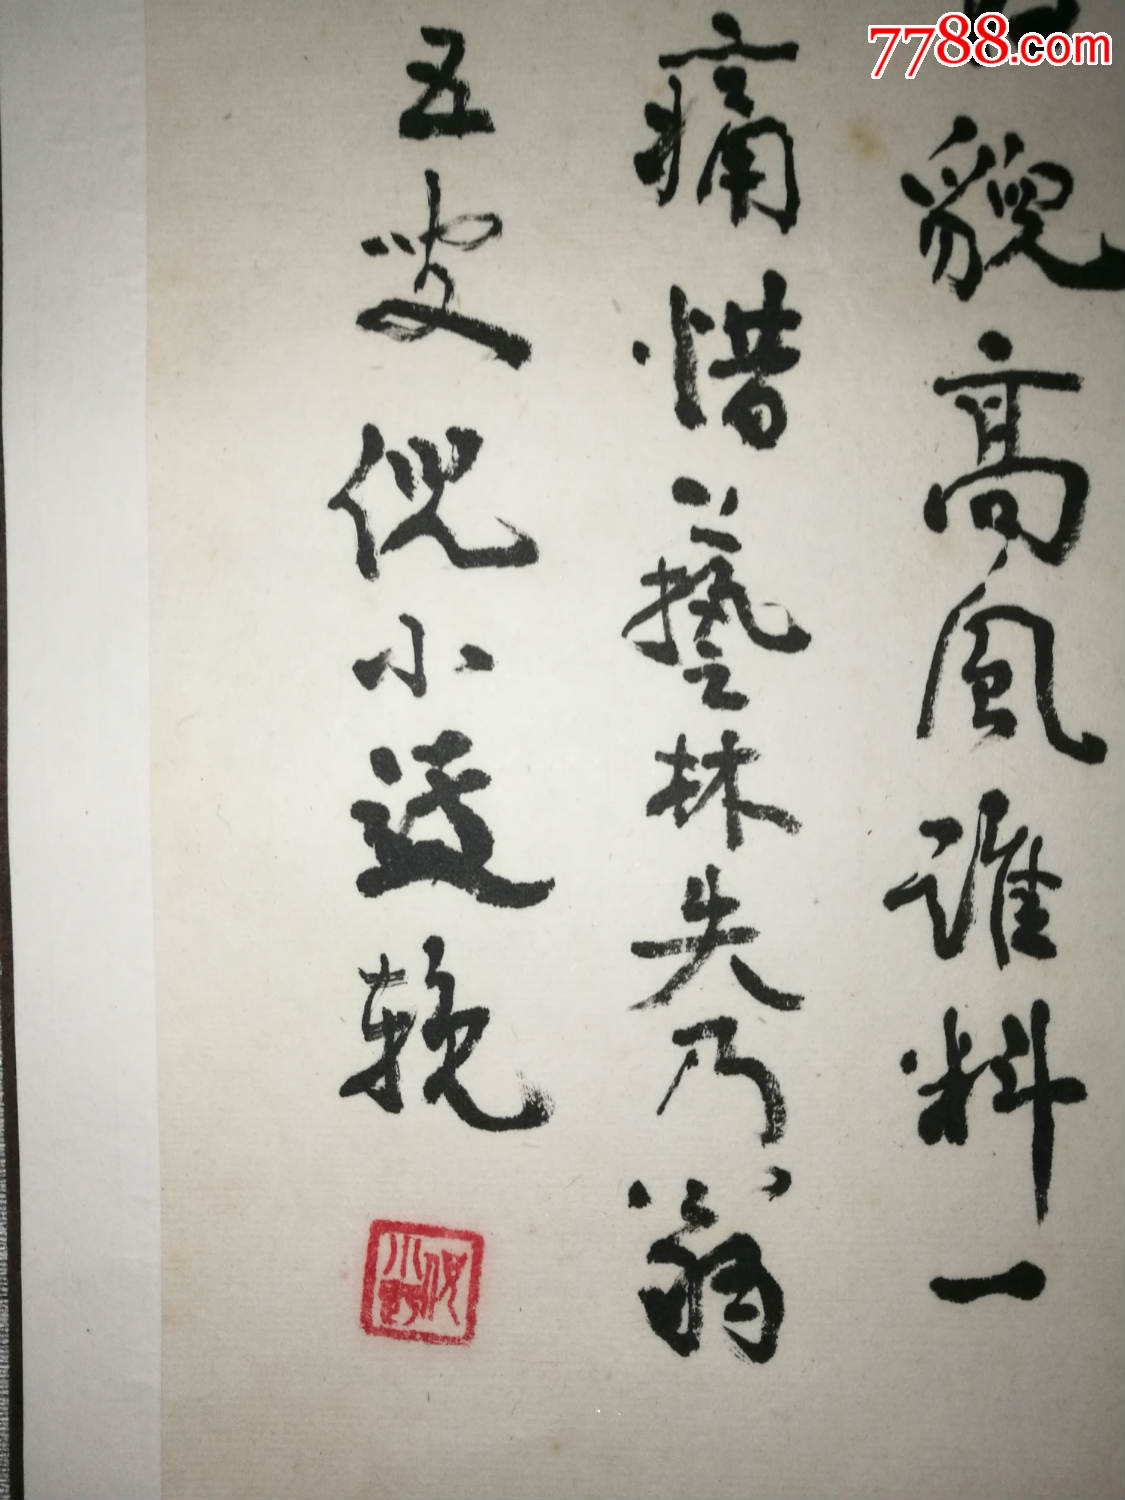 7788.com
貌高風誰料一
痛惜藝林失乃翁
五叟倪小迂輓
倪小野